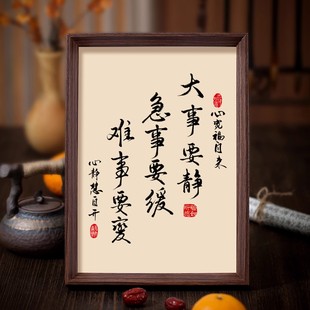 心宽福自来
大事要静
急事要缓
难事要变
心静慧自开